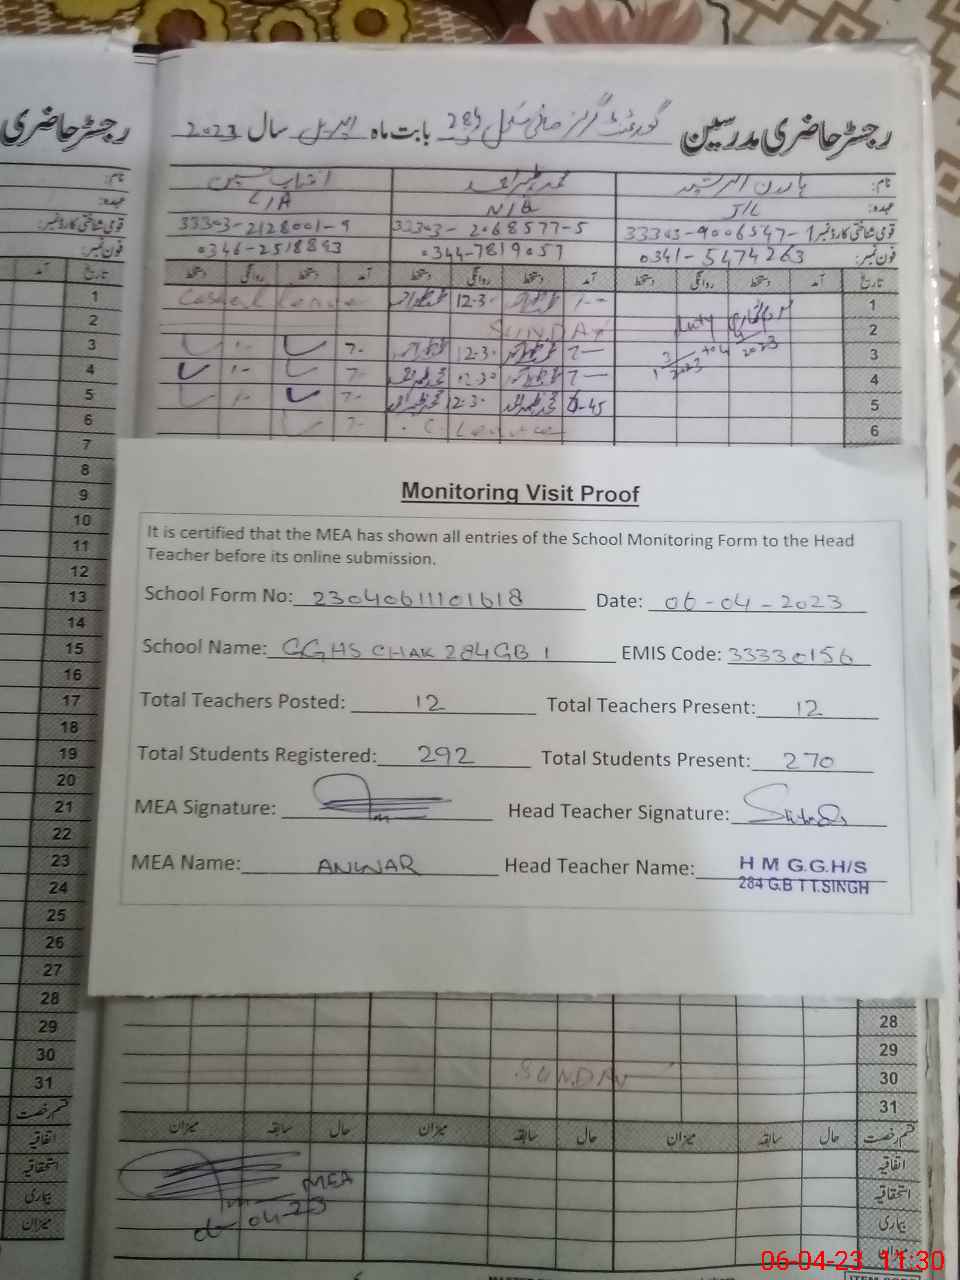 رجسٹر حاضری
رجسٹر حاضری مدرسین گورنمنٹ گرلز ہائی سکول 284 بابت ماہ اپریل سال 2023
نام:
نام: ہارون الرشید
عہدہ:
عہدہ: J/C N/Q L/A
قومی شناختی کارڈ نمبر:
قومی شناختی کارڈ نمبر 33303-9006547-1 33303-2068577-5 33303-2128001-9
فون نمبر:
فون نمبر: 0341-5474263 0344-7819057 0346-2518893
تاریخ آمد دستخط
تاریخ آمد دستخط روانگی دستخط آمد دستخط روانگی دستخط آمد دستخط روانگی دستخط
1 Casual Leave 12-30 7-- 1
2 SUNDAY Duty 2
3 7- 12-30 7- 1/3/2023 to 4/2023 3
4 7- 12-30 7- 4
5 7- 12-30 6-45 5
6 7- C. Leave 6
7
8
9
10
11
12
13
14
15
16
17
18
19
20
21
22
23
24
25
26
27
28
29
30
31
Monitoring Visit Proof
It is certified that the MEA has shown all entries of the School Monitoring Form to the Head
Teacher before its online submission.
School Form No: 23040611101618 Date: 06-04-2023
School Name: GGHS CHAK 284GB 1 EMIS Code: 33330156
Total Teachers Posted: 12 Total Teachers Present: 12
Total Students Registered: 292 Total Students Present: 270
MEA Signature: Head Teacher Signature:
MEA Name: ANWAR Head Teacher Name: H M G.G.H/S
284 G.B T T.SINGH
28
29
SUNDAY 30
31
قسم رخصت
قسم رخصت حال سابقہ میزان حال سابقہ میزان حال سابقہ میزان
اتفاقیہ
اتفاقیہ
استحقاقیہ
استحقاقیہ
بیماری
بیماری
میزان
میزان
MEA
06-04-23
06-04-23 11:30